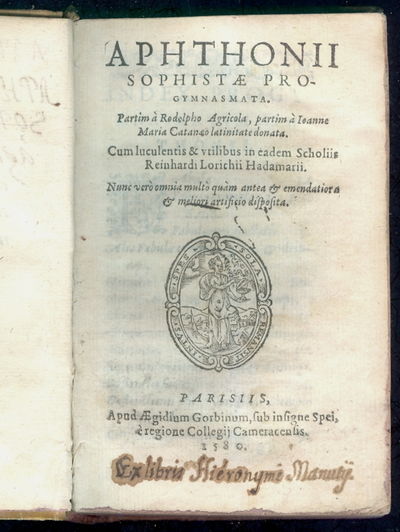 APHTHONII
SOPHISTÆ PRO-
GYMNASMATA.
Partim à Rodolpho Agricola, partim à Ioanne
Maria Catanæo latinitate donata.
Cum luculentis & vtilibus in eadem Scholiis
Reinhardi Lorichii Hadamarii.
Nunc verò omnia multò quàm antea & emendatiora
& meliori artificio disposita.
SPES SOLA REMANSIT INTVS
PARISIIS,
Apud Ægidium Gorbinum, sub insigne Spei,
è regione Collegij Cameracensis.
1580.
Ex libris Hieronymi Manutij